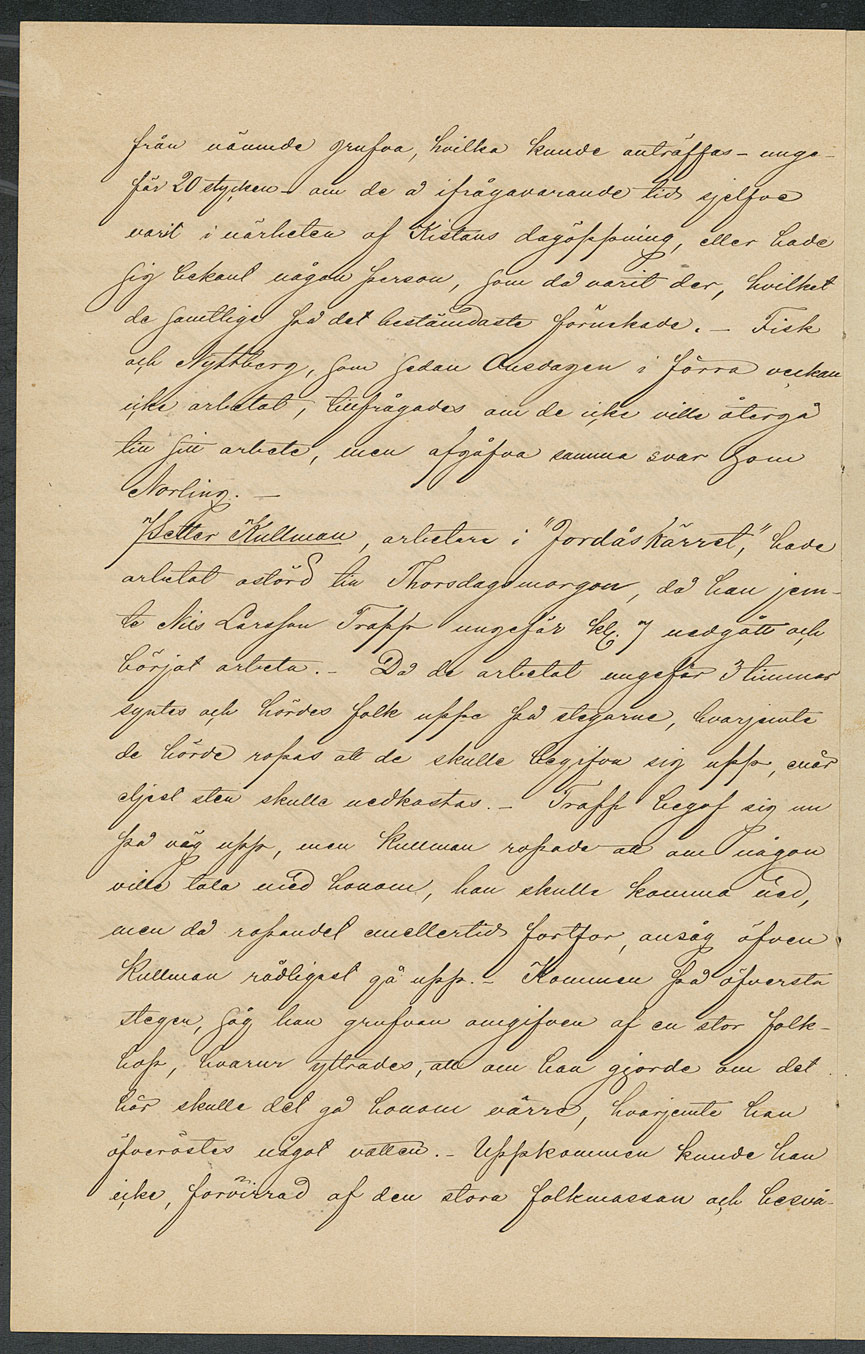 från nämnde grufva, hvilka kunde anträffas – unge-
fär 20 stycken – om de å ifrågavarande tid sjelfve
varit i närheten af Kistans dagöppning, eller hade
sig bekant någon person, som då varit der, hvilket
de samtlige på det bestämdaste förnekade. – Fisk
och Nyttberg, som sedan Onsdagen i förra veckan
icke arbetat, tillfrågades om de icke ville återgå
till sitt arbete, men afgåfvo samma svar som
Norling. –
Petter Kullman, arbetare i "Jordåskärret," hade
arbetat ostörd till Thorsdagsmorgon, då han jem-
te Nils Larsson Trapp ungefär kl. 7 nedgått och
börjat arbeta. – Då de arbetat ungefär 3 timmar
syntes och hördes folk uppe på stegarne, hvarjemte
de hörde ropas att de skulle begifva sig upp, enär
eljest sten skulle nedkastas. – Trapp begaf sig nu
på väg upp, men Kullman ropade att om någon
ville tala med honom, han skulle komma ned,
men då ropandet emellertid fortfor, ansåg öfven
Kullman rådligast gå upp. – Kommen på öfversta
stegen, såg han grufvan omgifven af en stor folk-
hop, hvarur yttrades, att om han gjorde om det
här skulle det gå honom värre, hvarjemte han
öfveröstes något vatten. – Uppkommen kunde han
icke, förvirrad af den stora folkmassan och besvä-